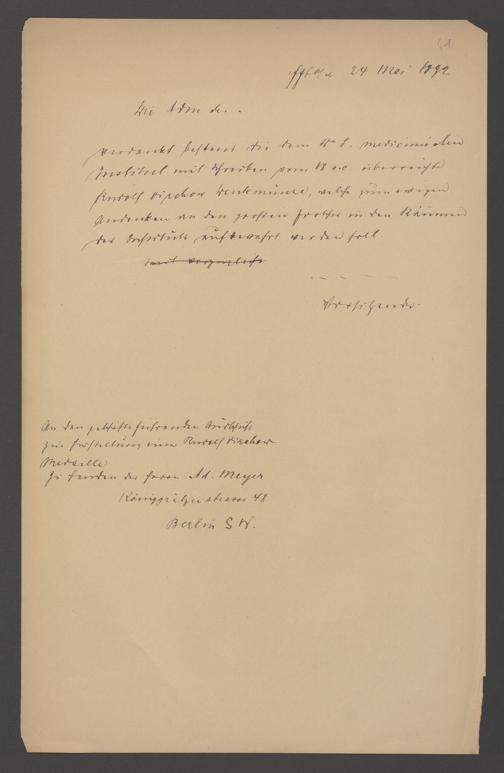 51
Fft a/M 24 Mai 1892
Die Adm de..
verdankt bestens die dem Dr S. medicinischen
Institut mit Schreiben vom 18 ac. überreichte
Rudolf Virchow Denkmünze, welche zum ewigen
Andenken an den großen Forscher in den Räumen
des Instituts aufbewahrt werden soll.
Vorsitzende.
An den geschäftsführenden Ausschuss
zur Herstellung einer Rudolf Virchow
Medaille
zu Handen des Herrn Ad. Meyer
Königgrätzer strasse 48
Berlin S W.